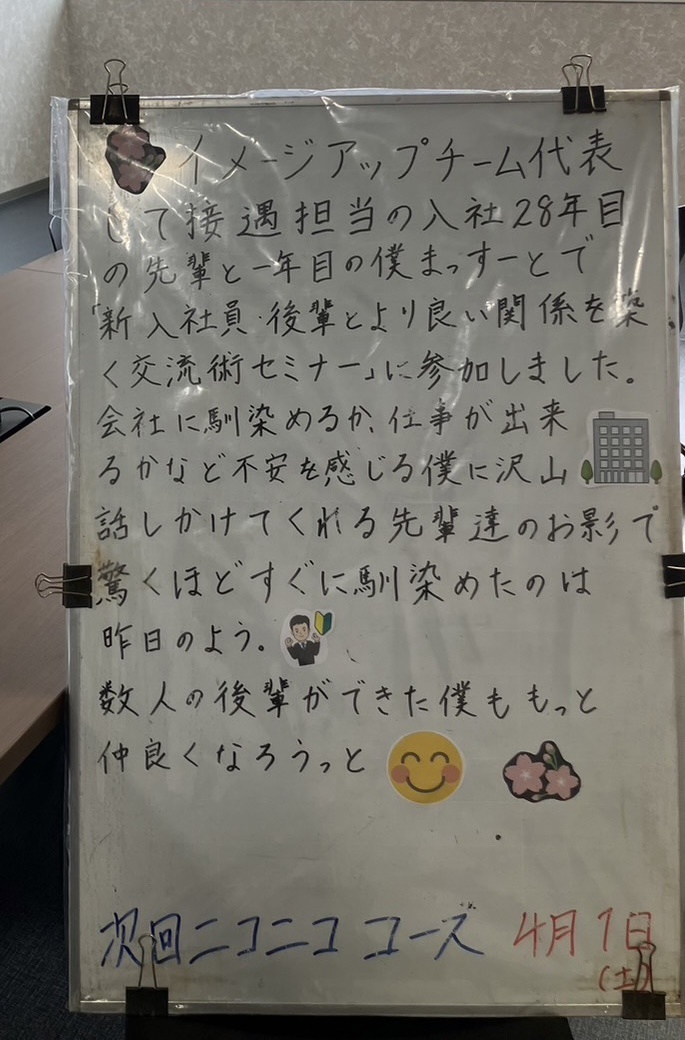 イメージアップチーム代表
して接遇担当の入社28年目
の先輩と一年目の僕まっすーとで
「新入社員・後輩とより良い関係を築
く交流術セミナー」に参加しました。
会社に馴染めるか、仕事が出来
るかなど不安を感じる僕に沢山
話しかけてくれる先輩達のお影で
驚くほどすぐに馴染めたのは
昨日のよう。
数人の後輩ができた僕ももっと
仲良くなろうっと
次回ニコニココーズ 4月1日
(土)